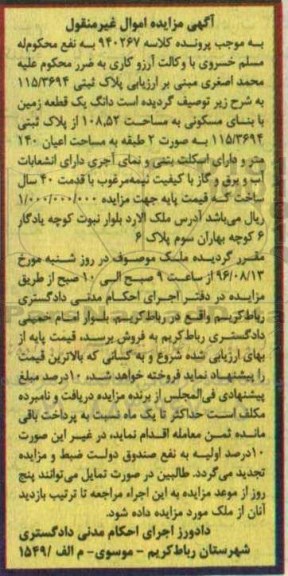 آگهی مزایده اموال غیرمنقول
به موجب پرونده کلاسه ۹۴۰۲۶۷ به نفع محکوم‌له
مسلم خسروی با وکالت آرزو کاری به ضرر محکوم علیه
محمد اصغری مبنی بر ارزیابی پلاک ثبتی ۱۱۵/۳۶۹۴
به شرح زیر توصیف گردیده است دانگ یک قطعه زمین
با بنای مسکونی به مساحت ۱۰۸,۵۲ از پلاک ثبتی
۱۱۵/۳۶۹۴ به صورت ۲ طبقه به مساحت اعیان ۱۴۰
متر و دارای اسکلت بتنی و نمای آجری دارای انشعابات
آب و برق و گاز با کیفیت نیمه‌مرغوب با قدمت ۴۰ سال
ساخت که قیمت پایه جهت مزایده ۱/۰۰۰/۰۰۰/۰۰۰
ریال می‌باشد آدرس ملک آلارد بلوار نبوت کوچه یادگار
۶ کوچه بهاران سوم پلاک ۶
مقرر گردیده ملک موصوف در روز شنبه مورخ
۹۶/۰۸/۱۳ از ساعت ۹ صبح الی ۱۰ صبح از طریق
مزایده در دفتر اجرای احکام مدنی دادگستری
رباط‌کریم واقع در رباط‌کریم. بلوار امام خمینی
دادگستری رباط‌کریم به فروش برسد، قیمت پایه از
بهای ارزیابی شده شروع و به کسانی که بالاترین قیمت
را پیشنهاد نماید فروخته خواهد شد، ۱۰درصد مبلغ
پیشنهادی فی‌المجلس از برنده مزایده دریافت و نامبرده
مکلف است حداکثر تا یک ماه نسبت به پرداخت باقی
مانده ثمن معامله اقدام نماید، در غیر این صورت
۱۰درصد اولیه به نفع صندوق دولت ضبط و مزایده
تجدید می‌گردد. طالبین در صورت تمایل می‌توانند پنج
روز از موعد مزایده به این اجراء مراجعه تا ترتیب بازدید
آنان از ملک مورد مزایده داده شود.
دادورز اجرای احکام مدنی دادگستری
شهرستان رباط‌کریم - موسوی- م الف /۱۵۴۹